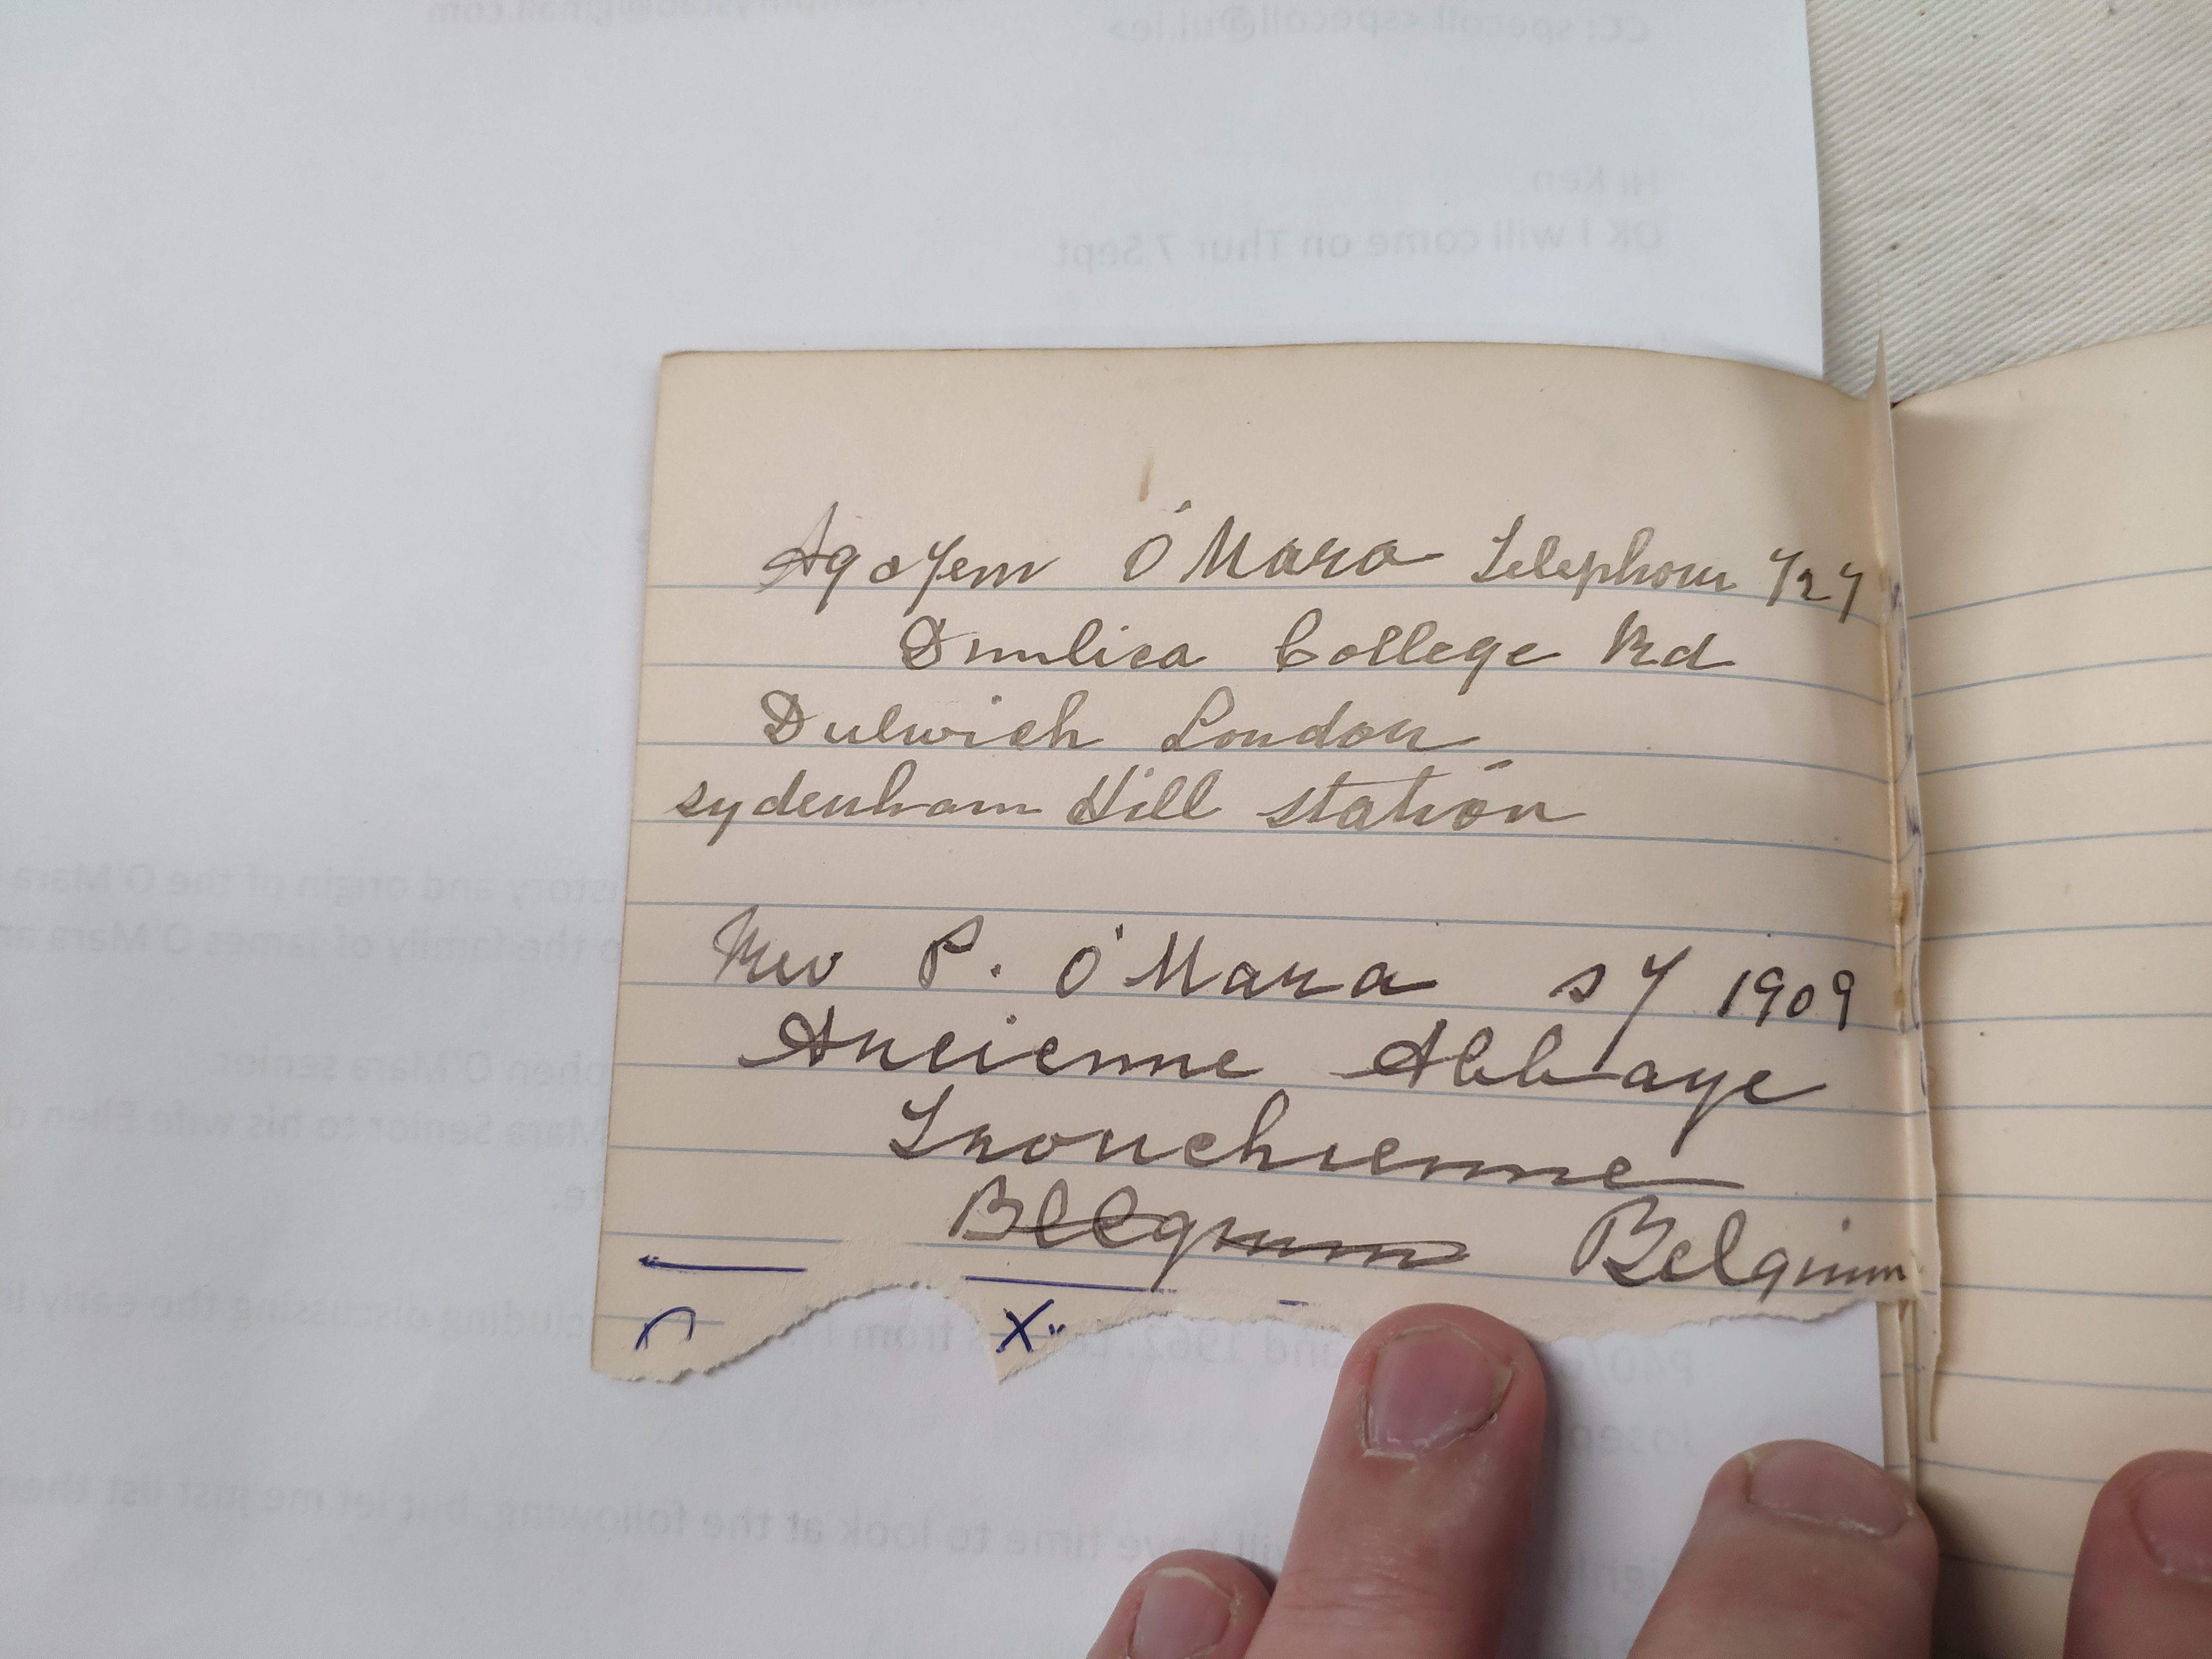 CC: specoll <specoll@ul.ie>
Hi Ken
OK I will come on Thur 7 Sept
O'Mara Telephone 727
College Rd
Dulwich London
sydenham Hill station
Rev P. O'Mara SJ 1909
Ancienne Abbaye
Tronchienne
Belgium Belgium
X..
story and origin of the O'Mara
the family of James O'Mara
phen O'Mara senior.
Mara Senior to his wife Ellen
cluding discussing the early
P40/ and 1962. from
Josep
will have time to look at the following, but let me just list then